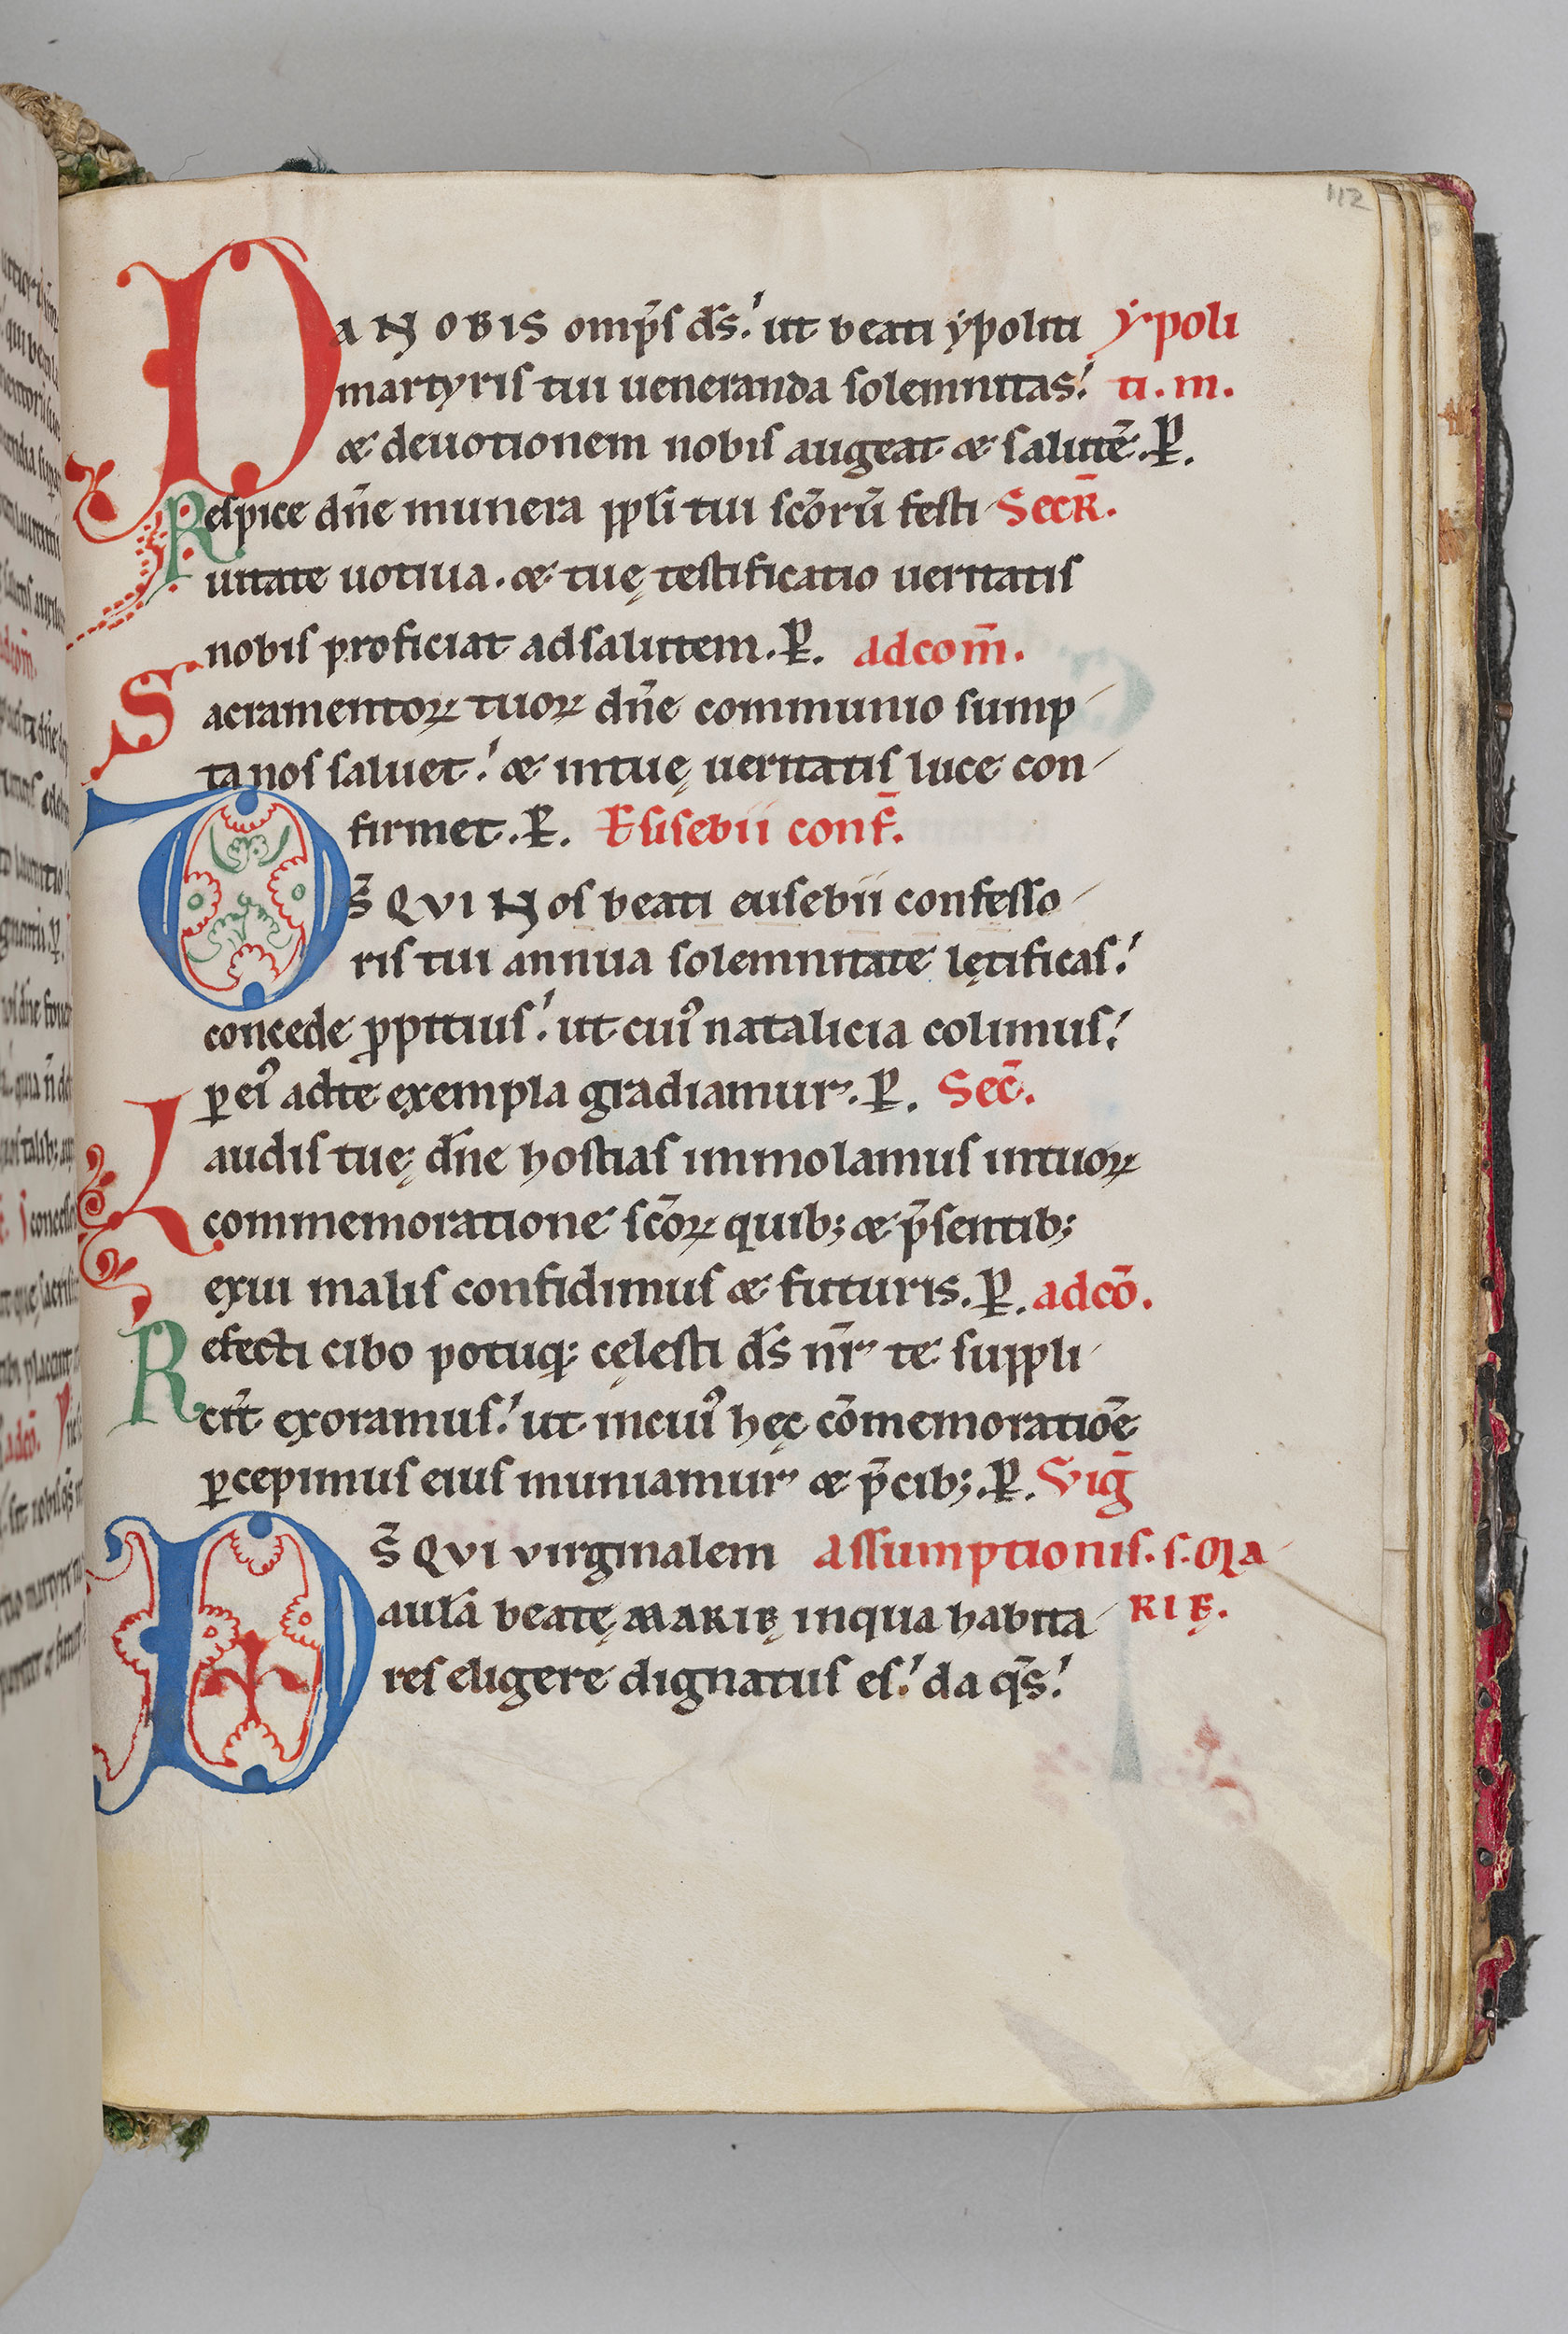 112
DA NOBIS omp̄s d̄s. ut beati ẏpoliti ẏpoli
martyris tui ueneranda solemnitas. ti. m.
& deuotionem nobis augeat & salutē. P̱.
Respice dn̄e munera ppl̄i tui sc̄orū festi Secr̄.
uitate uotiua. & tuę testificatio ueritatis
nobis proficiat adsalutem. P̱. adcom̄.
Sacramentoꝝ tuoꝝ dn̄e communio sump
ta nos saluet. & intuę ueritatis luce con
firmet. P̱. Eusebii conf̄.
DS̄ QVI Nos beati eusebii confesso
ris tui annua solemnitate lętificas.
concede ꝓpitius. ut cuiꝰ natalicia colimus.
ꝑ eiꝰ adte exempla gradiamur. P̱. Sec̄.
Laudis tuę dn̄e hostias immolamus intuoꝝ
commemoratione sc̄oꝝ quib; & p̄sentib;
exui malis confidimus & futuris. P̱. adcō.
Refecti cibo potuq; cęlesti d̄s nr̄ te suppli
cit̄ exoramus. ut incuiꝰ hęc cōmemoratiōe
ꝑcepimus eius muniamur & p̄cib;. P̱. Viḡ
DS̄ QVI virginalem assumptionis. s. Ma
aulā beatę MARIĘ inqua habita RIĘ.
res eligere dignatus es. da qs̄.